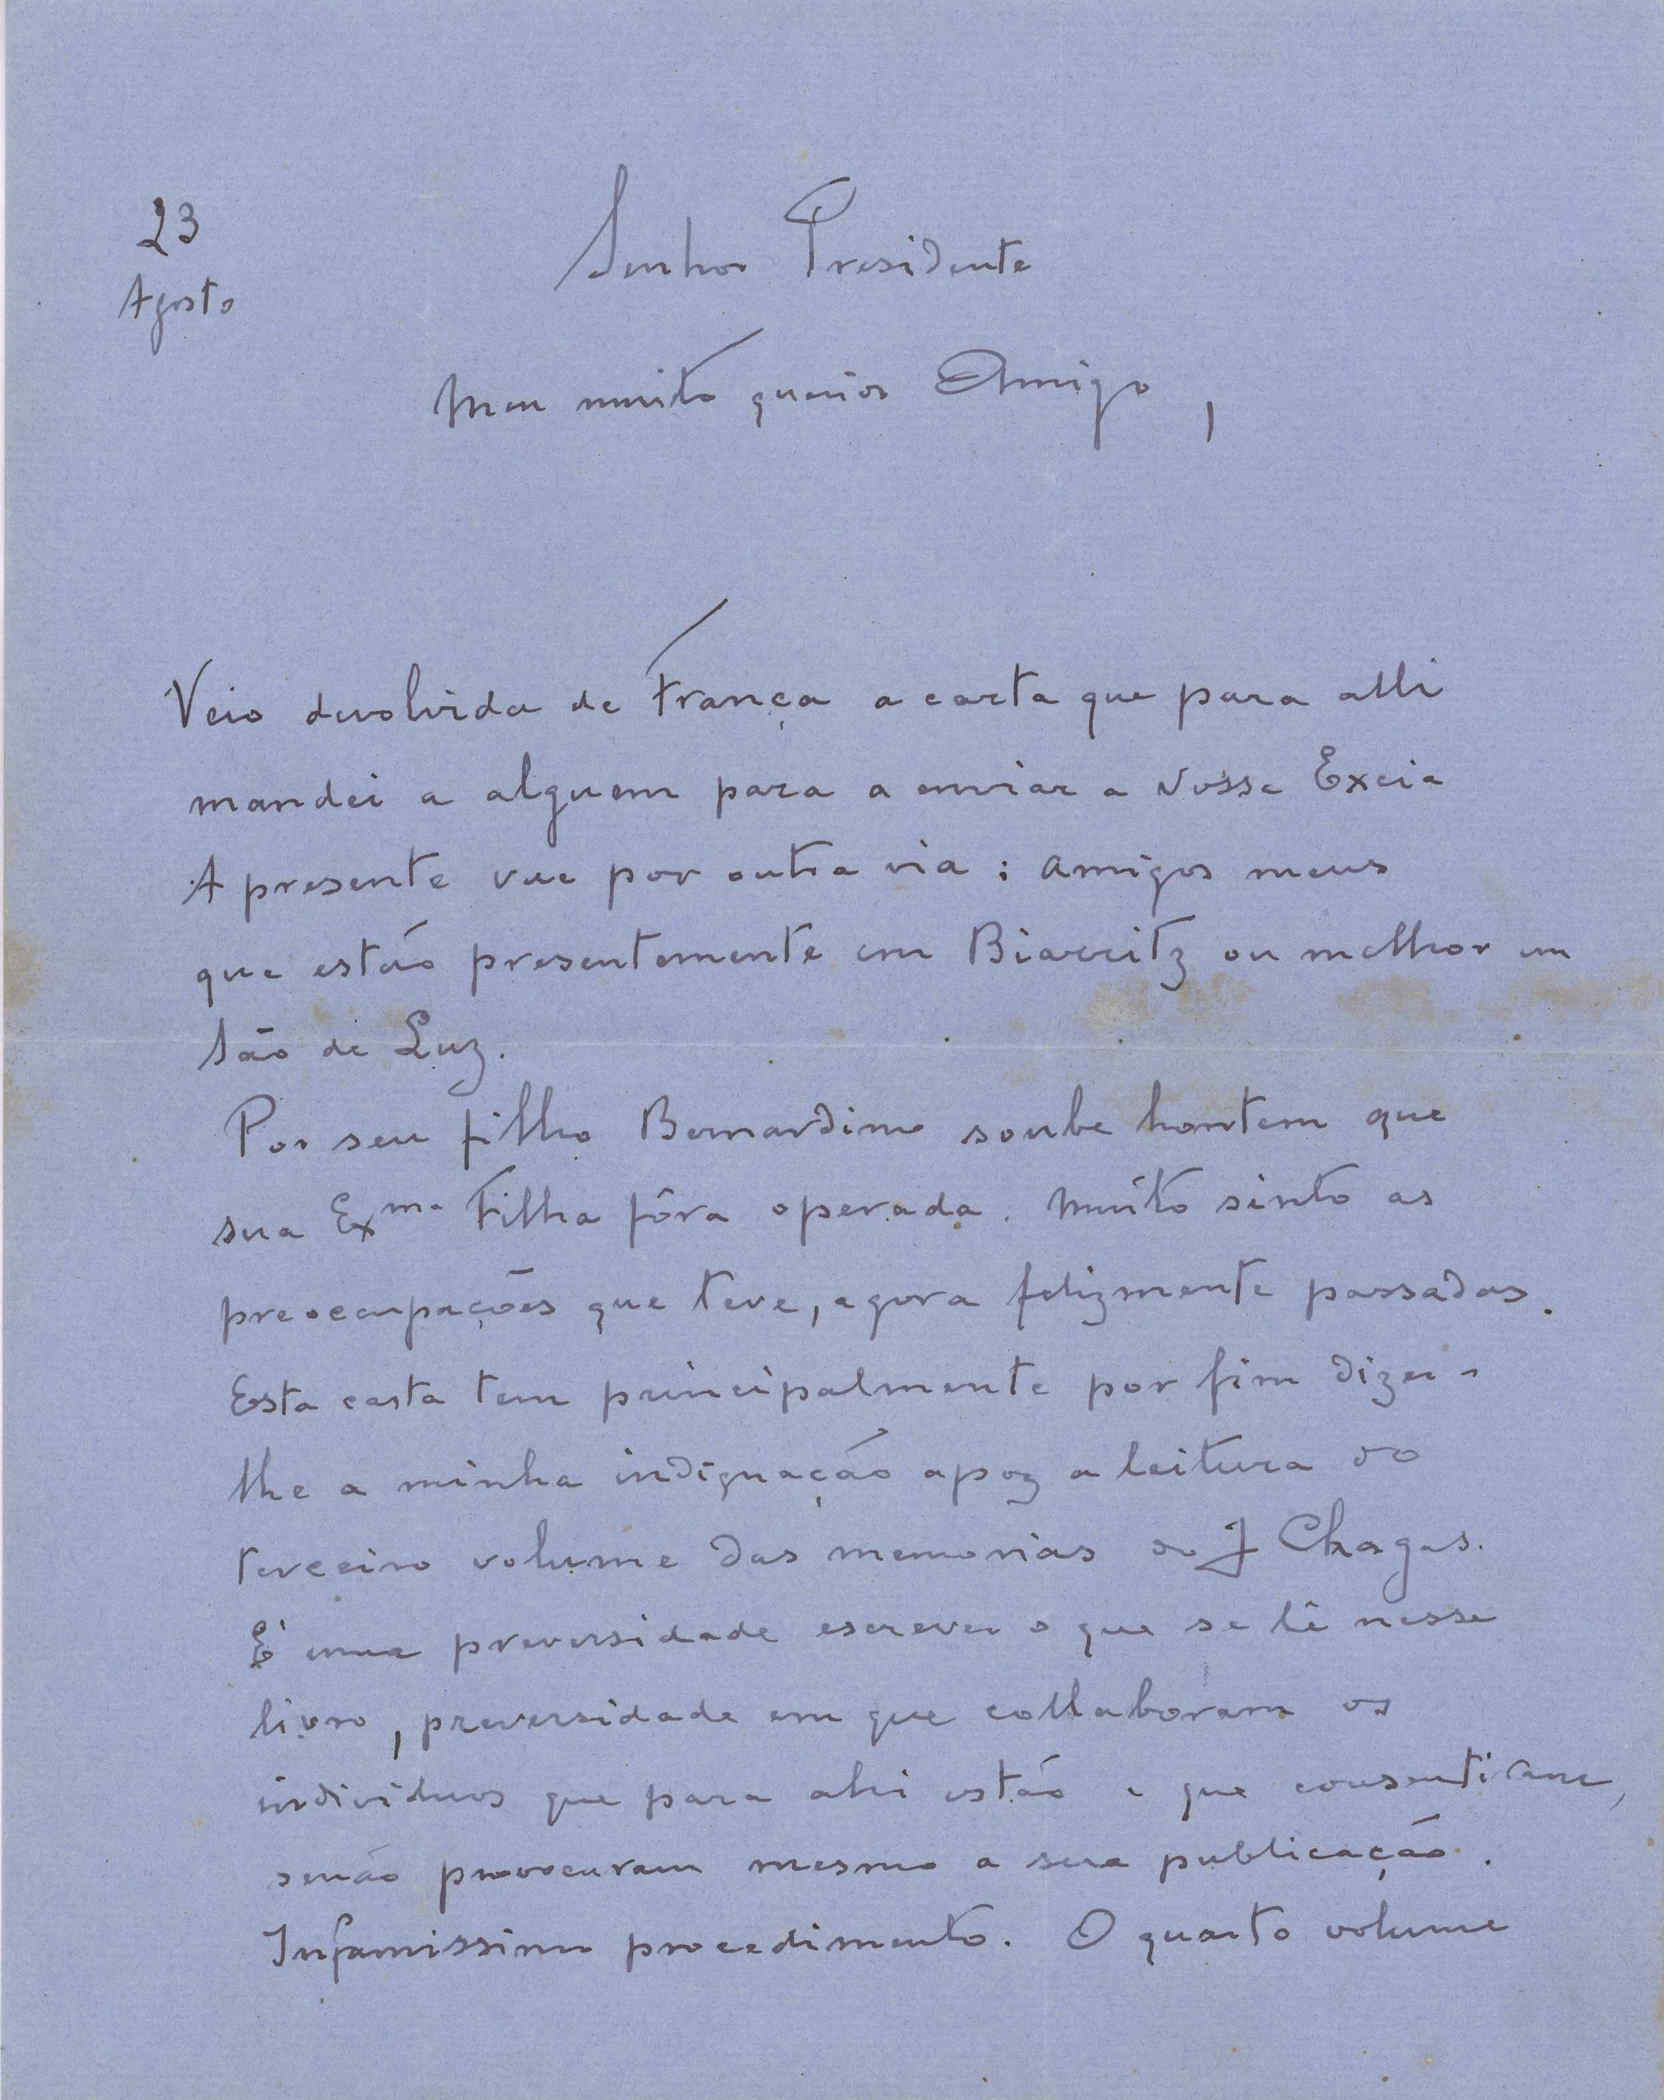 23
Agosto
Senhor Presidente
Meu muito querido Amigo,
Veio devolvida de França a carta que para alli
mandei a alguem para a enviar a Vossa Excia
A presente vae por outra via: amigos meus
que estão presentemente em Biarritz ou melhor em
São de Luz.
Por seu filho Bernardino soube hontem que
sua Exma Filha fôra operada. Muito sinto as
preocupações que teve, agora felizmente passadas.
Esta carta tem principalmente por fim dizer-
lhe a minha indignação apoz a leitura do
terceiro volume das memorias do J Chagas.
E' uma preversidade escrever o que se lê nesse
livro, preversidade em que collaboram os
individuos que para ahi estão e que consentiram,
senão provocaram mesmo a sua publicação.
Infamissimo procedimento. O quarto volume